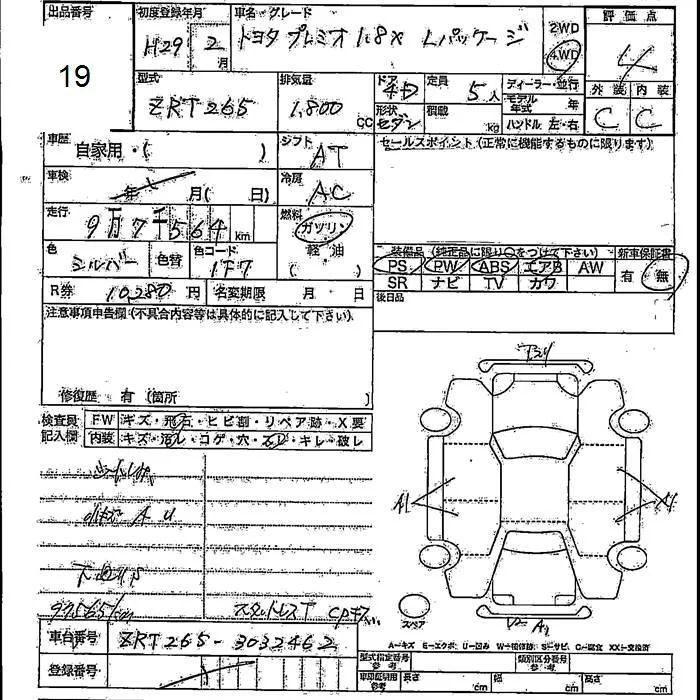 出品番号
19
初度登録年月
H29 2月
車名・グレード
トヨタ プレミオ 1.8X Lパッケージ
2WD
4WD
評価点
4
外装 内装
C C
型式
ZRT265
排気量
1,800 CC
ドア
4D
形状
セダン
定員
5人
積載
kg
ディーラー・並行
モデル年式 年
ハンドル 左・右
車歴
自家用・( )
シフト
AT
車検
年 月( 日)
冷房
AC
走行
9万7千564 km
燃料
ガソリン
軽油
( )
色
シルバー
色替
色コード
1F7
R券
10,280円
名変期限 月 日
セールスポイント(正常に機能するものに限ります)
装備品 (純正品に限り○をつけて下さい)
新車保証書
PS PW ABS エアB AW
有 無
SR ナビ TV カワ
後日品
注意事項申告欄(不具合内容等は具体的に記入して下さい)
修復歴 有(箇所 )
検査員記入欄
FW キズ・飛石・ヒビ割・リペア跡・X要
内装 キズ・汚レ・コゲ・穴・スレ・キレ・破レ
小キズ A U
下廻りS
97565km
スタットレスT
A1
スペア
車台番号
ZRT265-3032462
A=キズ E=エクボ U=凹み W=補修跡 S=サビ C=腐食 XX=交換済
登録番号
型式指定番号 参考
類別区分番号 参考
車庫証明用 参考
長さ cm 幅 cm 高さ cm